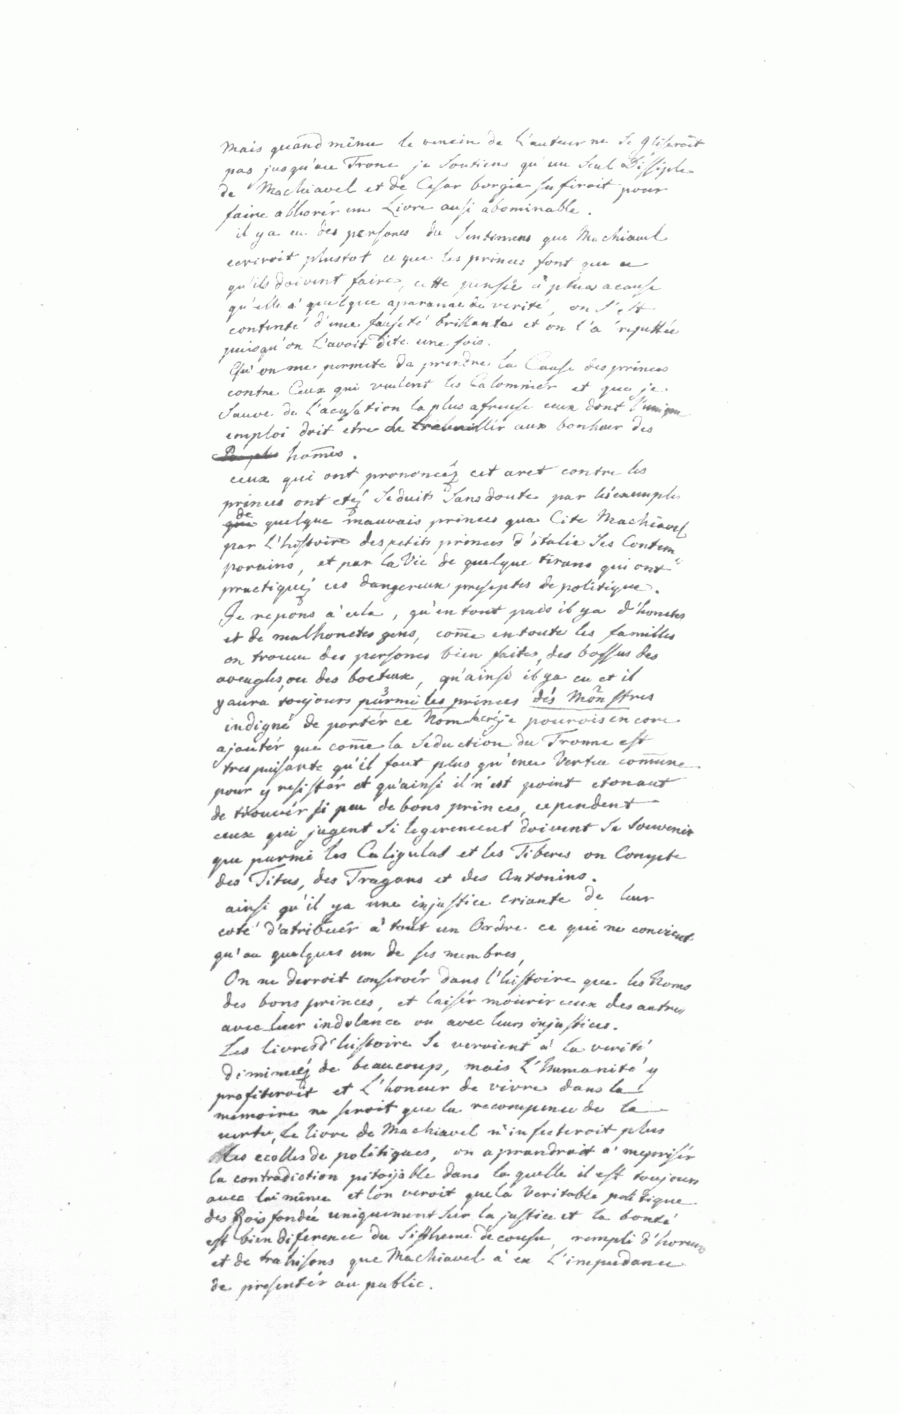 Mais quand même le venein de L'auteur ne se gliseroit
pas jusqu'au Trone je soutiens qu'un seul Dissiple
de Machiavel et de Cesar borgia sufiroit pour
faire abhorér un Livre ausi abominable.
il ya eu des persones du sentimens que Machiavel
ecrivoit plustot ce que les princes font que ce
qu'ils doivent faire, cette pensée à plu a cause
qu'elle a quelque aparance de verité, on s'est
contenté d'une fauseté brillante et on l'a reputtée
puisqu'on L'avoit dite une fois.
Qu'on me permete da prendre la Cause des princes
contre Ceux qui veulent les Calomnier et que je
sauve de L'acusation la plus afreuse ceux dont l'unique
emploi doit etre de travaillér aux bonheur des
homes.
ceux qui ont prononcéz cet aret contre les
princes ont etéz seduits sans doute par les examples
de quelque mauvais princes que Cite Machiavel
par L'histoire des petits princes d'italie ses Contem
porains, et par la Vie de quelque tirans qui ont
practiquéz ces dangereux preseptes de politique.
Je repons à cela, qu'en tout païs il ya d'honetes
et de malhonetes gens, come en toute les familles
on trouve des persones bien faites, des bossus des
aveugles ou des boeteux, qu'ainsi il ya eu et il
yaura toujours parmi les princes des Monstres
indigne de portér ce Nom je pourois encore
ajoutér que come la seduction du Tronne est
tres puisante qu'il faut plus qu'une Vertu comune
pour y resistér et qu'ainsi il n'est point etonant
de trouvér si peu de bons princes, cependent
ceux qui jugent si legerement doivent se souvenir
que parmi les Caligulas et les Tiberes on Compte
des Titus, des Tragans et des Antonins.
ainsi qu'il ya une injustice criante de leur
coté d'atribuér à tout un Ordre ce qui ne convient
qu'au quelques un de ses membres,
On ne devroit conservér dans l'histoire que les Noms
des bons princes, et laisér mourir ceux des autres
avec leur indolance ou avec leurs injustices.
Les livres d'histoire se veroient à la verité
diminuéz de beaucoup, mais L'Humanité y
profiteroit et L'honeur de vivre dans la
memoire ne seroit que la recompense de la
vertu, Le livre de Machiavel n'infecteroit plus
les ecolles de politiques, on aprandroit a meprisér
la contradiction pitoijable dans la quelle il est toujours
avec lui même et l'on veroit que la Veritable politique
des Rois fondée uniquement sur la justice et la bonté
est bien diferente du sisthème décousu, rempli d'horeurs
et de trahisons que Machiavel à eu L'impudance
de presentér au public.